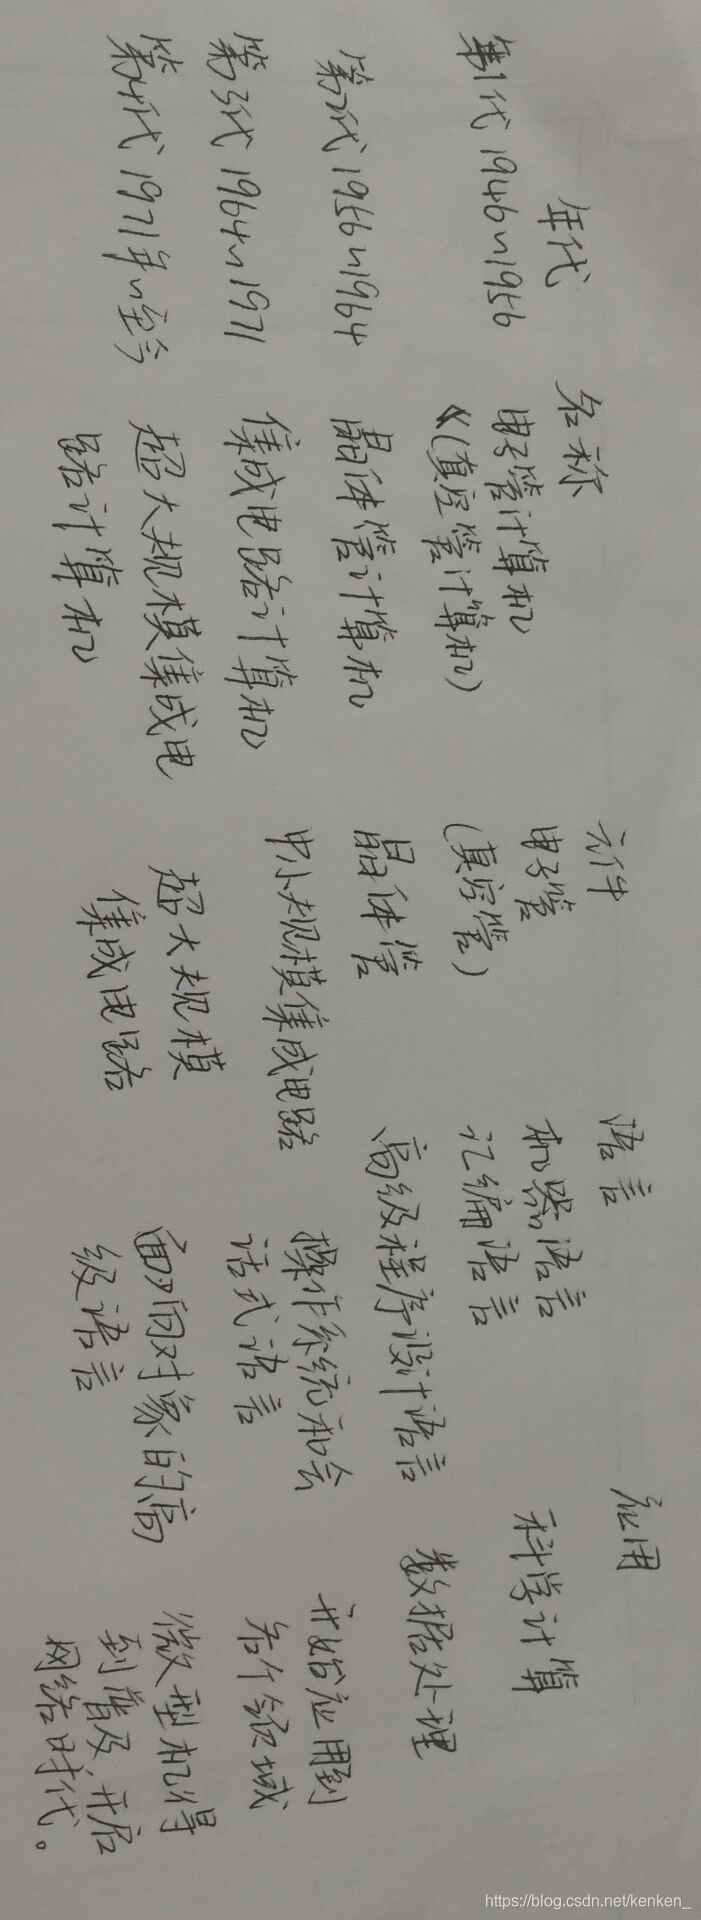 年代 名称 元件 语言 应用
第1代 1946~1956 电子管计算机 电子管 机器语言 科学计算
(真空管计算机) (真空管) 汇编语言
第2代 1956~1964 晶体管计算机 晶体管 高级程序设计语言 数据处理
第3代 1964~1971 集成电路计算机 中小规模集成电路 操作系统和会 开始应用到
话式语言 各个领域
第4代 1971年~至今 超大规模集成电 超大规模 面向对象的高 微型机得
路计算机 集成电路 级语言 到普及 开启
网络时代。
https://blog.csdn.net/kenken_